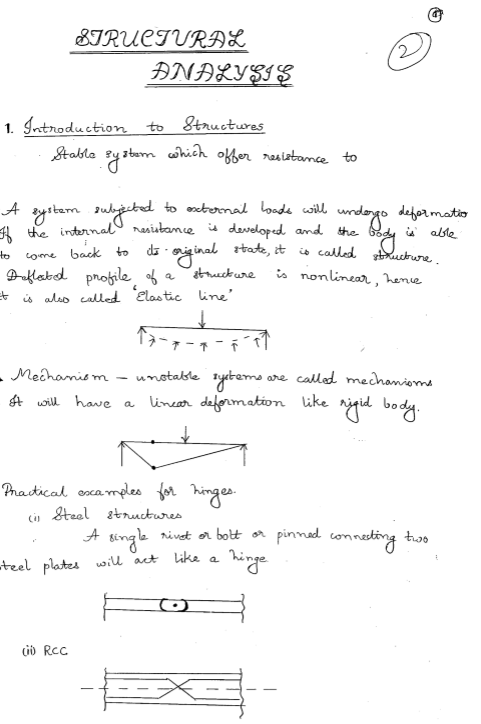 2
STRUCTURAL
ANALYSIS
1. Introduction to Structures
Stable system which offer resistance to
A system subjected to external loads will undergo deformatio
If the internal resistance is developed and the body is able
to come back to its original state, it is called structure.
Deflected profile of a structure is nonlinear, hence
it is also called 'Elastic line'
Mechanism – unstable systems are called mechanisms
It will have a linear deformation like rigid body.
Practical examples for hinges.
(i) Steel structures
A single rivet or bolt or pinned connecting two
steel plates will act like a hinge
(ii) RCC